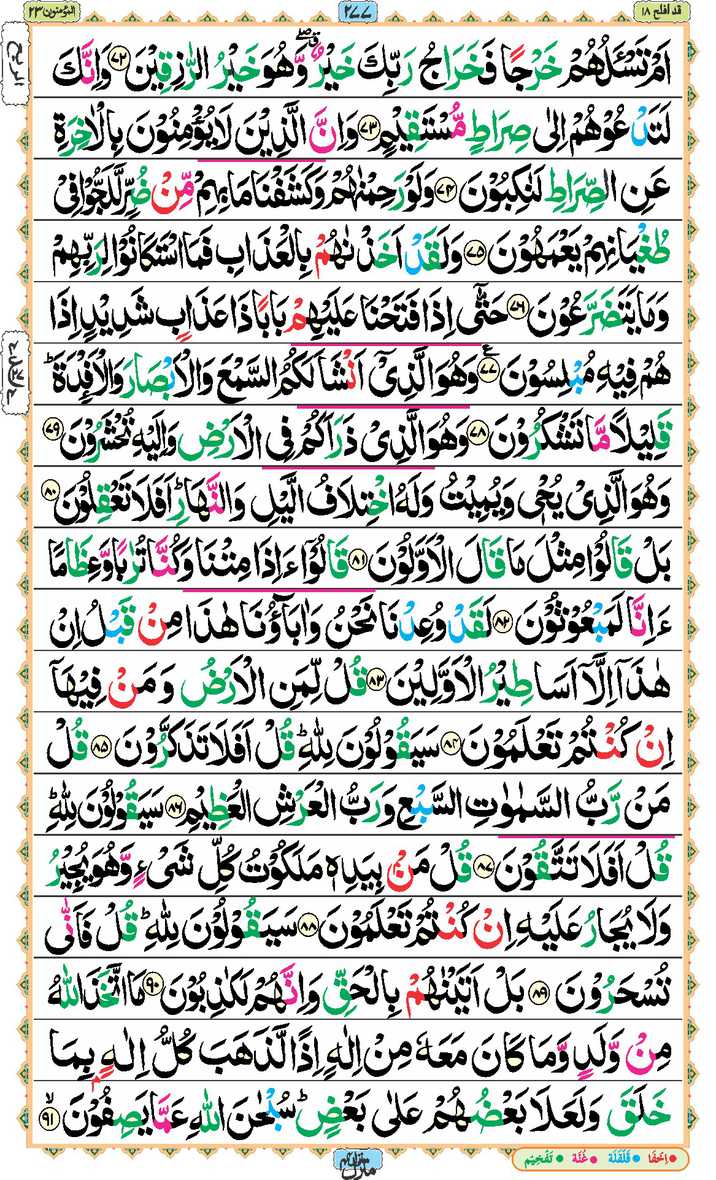 قد افلح ١٨
٢٧٧
المؤمنون ٢٣
اَمْ تَسْـَٔلُهُمْ خَرْجًا فَخَرَاجُ رَبِّكَ خَيْرٌ ۖ وَّهُوَ خَيْرُ الرّٰزِقِيْنَ ٧٢ وَاِنَّكَ
لَتَدْعُوْهُمْ اِلٰى صِرَاطٍ مُّسْتَقِيْمٍ ٧٣ وَاِنَّ الَّذِيْنَ لَا يُؤْمِنُوْنَ بِالْاٰخِرَةِ
عَنِ الصِّرَاطِ لَنٰكِبُوْنَ ٧٤ وَلَوْ رَحِمْنٰهُمْ وَكَشَفْنَا مَا بِهِمْ مِّنْ ضُرٍّ لَّلَجُّوْا فِيْ
طُغْيَانِهِمْ يَعْمَهُوْنَ ٧٥ وَلَقَدْ اَخَذْنٰهُمْ بِالْعَذَابِ فَمَا اسْتَكَانُوْا لِرَبِّهِمْ
وَمَا يَتَضَرَّعُوْنَ ٧٦ حَتّٰٓى اِذَا فَتَحْنَا عَلَيْهِمْ بَابًا ذَا عَذَابٍ شَدِيْدٍ اِذَا
هُمْ فِيْهِ مُبْلِسُوْنَ ٧٧ ع وَهُوَ الَّذِيْٓ اَنْشَاَ لَكُمُ السَّمْعَ وَالْاَبْصَارَ وَالْاَفْـِٕدَةَ ؕ
قَلِيْلًا مَّا تَشْكُرُوْنَ ٧٨ وَهُوَ الَّذِيْ ذَرَاَكُمْ فِي الْاَرْضِ وَاِلَيْهِ تُحْشَرُوْنَ ٧٩
وَهُوَ الَّذِيْ يُحْيٖ وَيُمِيْتُ وَلَهُ اخْتِلَافُ الَّيْلِ وَالنَّهَارِ ؕ اَفَلَا تَعْقِلُوْنَ ٨٠
بَلْ قَالُوْا مِثْلَ مَا قَالَ الْاَوَّلُوْنَ ٨١ قَالُوْٓا ءَاِذَا مِتْنَا وَكُنَّا تُرَابًا وَّعِظَامًا
ءَاِنَّا لَمَبْعُوْثُوْنَ ٨٢ لَقَدْ وُعِدْنَا نَحْنُ وَاٰبَآؤُنَا هٰذَا مِنْ قَبْلُ اِنْ
هٰذَآ اِلَّآ اَسَاطِيْرُ الْاَوَّلِيْنَ ٨٣ قُلْ لِّمَنِ الْاَرْضُ وَمَنْ فِيْهَآ
اِنْ كُنْتُمْ تَعْلَمُوْنَ ٨٤ سَيَقُوْلُوْنَ لِلّٰهِ ؕ قُلْ اَفَلَا تَذَكَّرُوْنَ ٨٥ قُلْ
مَنْ رَّبُّ السَّمٰوٰتِ السَّبْعِ وَرَبُّ الْعَرْشِ الْعَظِيْمِ ٨٦ سَيَقُوْلُوْنَ لِلّٰهِ ؕ
قُلْ اَفَلَا تَتَّقُوْنَ ٨٧ قُلْ مَنْۢ بِيَدِهٖ مَلَكُوْتُ كُلِّ شَيْءٍ وَّهُوَ يُجِيْرُ
وَلَا يُجَارُ عَلَيْهِ اِنْ كُنْتُمْ تَعْلَمُوْنَ ٨٨ سَيَقُوْلُوْنَ لِلّٰهِ ؕ قُلْ فَاَنّٰى
تُسْحَرُوْنَ ٨٩ بَلْ اَتَيْنٰهُمْ بِالْحَقِّ وَاِنَّهُمْ لَكٰذِبُوْنَ ٩٠ مَا اتَّخَذَ اللّٰهُ
مِنْ وَّلَدٍ وَّمَا كَانَ مَعَهٗ مِنْ اِلٰهٍ اِذًا لَّذَهَبَ كُلُّ اِلٰهٍۭ بِمَا
خَلَقَ وَلَعَلَا بَعْضُهُمْ عَلٰى بَعْضٍ ؕ سُبْحٰنَ اللّٰهِ عَمَّا يَصِفُوْنَ ۙ ٩١
اِخفَا
قَلقَلَة
غُنَّة
تَفْخِيْم